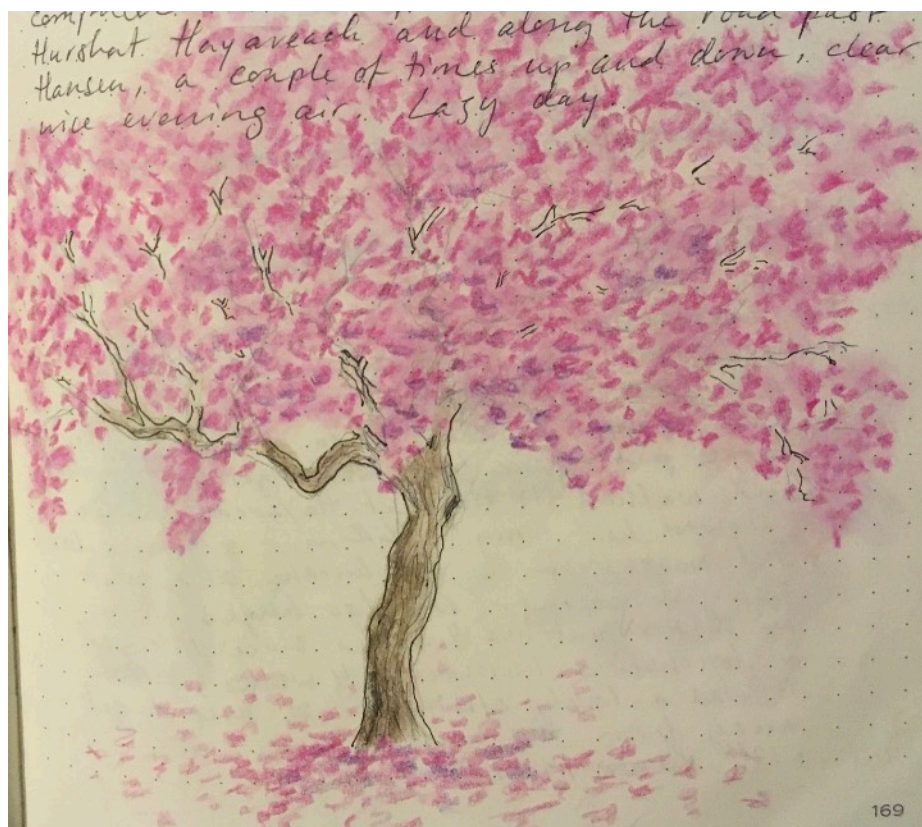 Hurshat Hayareach and along the road past
Hansen, a couple of times up and down, clear
nice evening air. Lazy day.
169